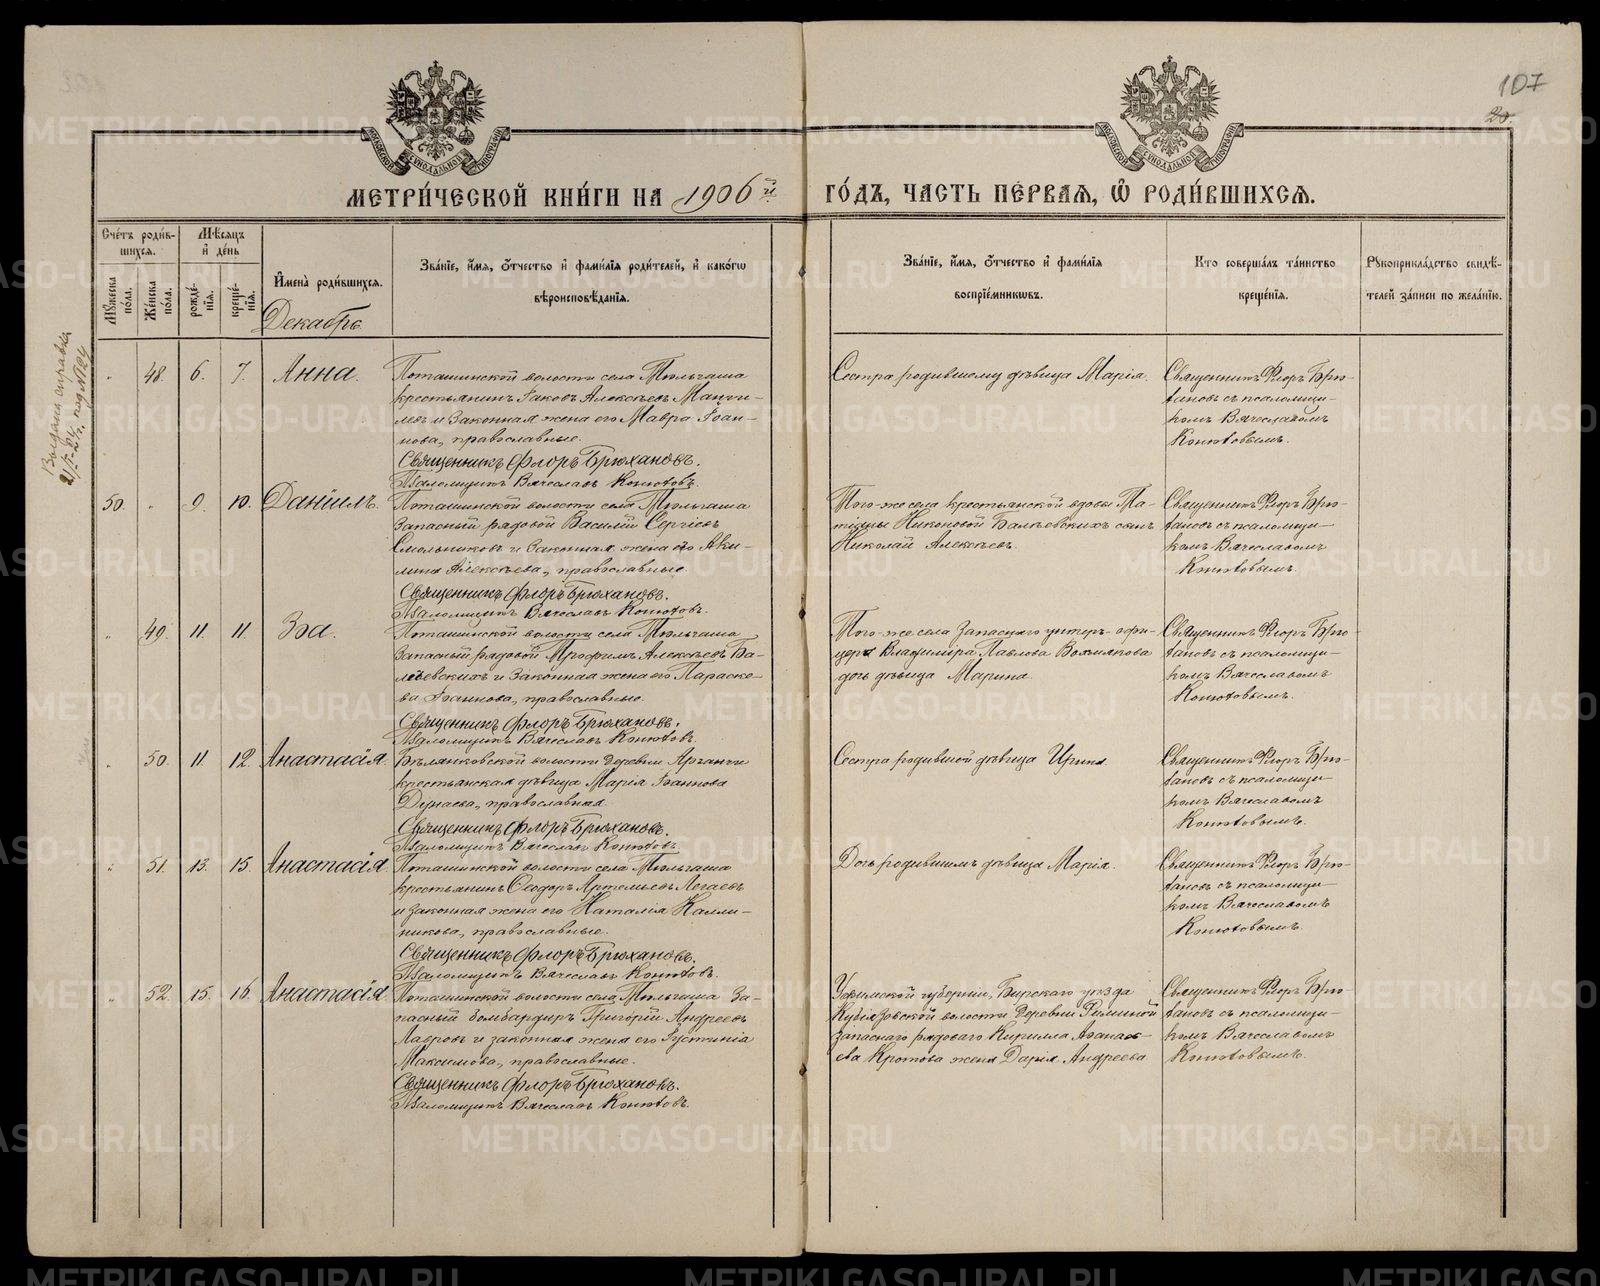 107
20.
МОСКОВСКОЙ СѴНОДАЛЬНОЙ ТИПОГРАФІИ
МОСКОВСКОЙ СѴНОДАЛЬНОЙ ТИПОГРАФІИ
МЕТРИ́ЧЕСКОЙ КНИ́ГИ НА 1906й
ГО́ДЪ, ЧАСТЬ ПЕ́РВАЯ, Ѡ҆ РОДИ́ВШИХСЯ.
Сче́тъ роди́в-
шихся.
Мѣ́сяцъ
и҆ де́нь
Мꙋ́жеска
по́ла.
Же́нска
по́ла.
рожде́-
нїя.
креще́-
нїя.
И҆мена̀ роди́вшихся.
Декабрь
Зва́нїе, и҆́мя, ѻ҆́тчество и҆ фами́лїя роди́телей, и҆ како́гѡ
вѣроисповѣ́данїя.
Зва́нїе, и҆́мя, ѻ҆́тчество и҆ фами́лїя
воспрїе́мникѡвъ.
Кто̀ соверша́лъ та́инство
креще́нїя.
Рꙋкоприкла́дство свидѣ́-
телей за́писи по жела́нїю.
Выдана справка
21/I-27г. под № 124
48. 6. 7. Анна.
Поташинской волости села Тюльгаша
крестьянинъ Іаковъ Алексѣевъ Манги-
левъ и законная жена его Мавра Іоан-
нова, православные.
Священникъ Флоръ Брюхановъ.
Псаломщикъ Вячеславъ Конютовъ.
Сестра родившему дѣвица Марія.
Священникъ Флоръ Брю-
хановъ съ псаломщи-
комъ Вячеславомъ
Конютовымъ.
50. 9. 10. Даніилъ.
Поташинской волости села Тюльгаша
Запасный рядовой Василій Сергіевъ
Смольниковъ и законная жена его Аки-
лина Алексѣева, православные.
Священникъ Флоръ Брюхановъ.
Псаломщикъ Вячеславъ Конютовъ.
Того-же села крестьянской вдовы Та-
тіаны Никоновой Балѣевскихъ сынъ
Николай Алексѣевъ.
Священникъ Флоръ Брю-
хановъ съ псаломщи-
комъ Вячеславомъ
Конютовымъ.
49. 11. 11. Зоа.
Поташинской волости села Тюльгаша
Запасный рядовой Трофимъ Алексѣевъ Ба-
лѣевскихъ и законная жена его Параске-
ва Іоаннова, православные.
Священникъ Флоръ Брюхановъ.
Псаломщикъ Вячеславъ Конютовъ.
Того-же села Запаснаго унтеръ-офи-
цера Владиміра Павлова Вожакова
дочь дѣвица Марина.
Священникъ Флоръ Брю-
хановъ съ псаломщи-
комъ Вячеславомъ
Конютовымъ.
50. 11. 12. Анастасія.
Бѣлянковской волости деревни Арганчи
крестьянская дѣвица Марія Іоаннова
Дунаева, православная.
Священникъ Флоръ Брюхановъ.
Псаломщикъ Вячеславъ Конютовъ.
Сестра родившей дѣвица Ирина.
Священникъ Флоръ Брю-
хановъ съ псаломщи-
комъ Вячеславомъ
Конютовымъ.
51. 13. 15. Анастасія.
Поташинской волости села Тюльгаша
крестьянинъ Ѳеодоръ Артемьевъ Легаевъ
и законная жена его Наталія Калли-
никова, православные.
Священникъ Флоръ Брюхановъ.
Псаломщикъ Вячеславъ Конютовъ.
Дочь родившимъ дѣвица Марія.
Священникъ Флоръ Брю-
хановъ съ псаломщи-
комъ Вячеславомъ
Конютовымъ.
52. 15. 16. Анастасія.
Поташинской волости села Тюльгаша За-
пасный бомбардиръ Григорій Андреевъ
Лавровъ и законная жена его Іустинія
Максимова, православные.
Священникъ Флоръ Брюхановъ.
Псаломщикъ Вячеславъ Конютовъ.
Уфимской губерніи, Бирскаго уѣзда
Кубіязовской волости деревни
запаснаго рядоваго Кирилла Аѳанась-
ева Кротова жена Дарія Андреева
Священникъ Флоръ Брю-
хановъ съ псаломщи-
комъ Вячеславомъ
Конютовымъ.
METRIKI.GASO-URAL.RU